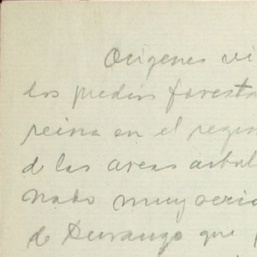 Origenes vi
los predios foresta
reina en el regis
de las areas arbol
nado muy seria
de Durango que